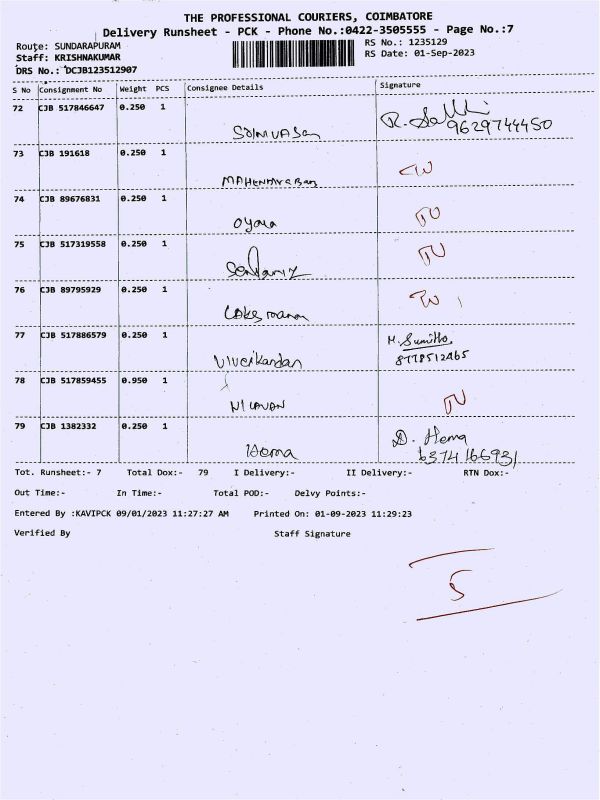 THE PROFESSIONAL COURIERS, COIMBATORE
Delivery Runsheet - PCK - Phone No.:0422-3505555 - Page No.:7
Route: SUNDARAPURAM
RS No.: 1235129
Staff: KRISHNAKUMAR
RS Date: 01-Sep-2023
DRS No.: DCJB123512907
S No Consignment No Weight PCS Consignee Details Signature
72 CJB 517846647 0.250 1
9629744450
73 CJB 191618 0.250 1
74 CJB 89676831 0.250 1
75 CJB 517319558 0.250 1
76 CJB 89795929 0.250 1
77 CJB 517886579 0.250 1
8778512465
Viveikandan
78 CJB 517859455 0.950 1
NILAVAN
79 CJB 1382332 0.250 1
D. Hema
Hema 6374166931
Tot. Runsheet:- 7 Total Dox:- 79 I Delivery:- II Delivery:- RTN Dox:-
Out Time:- In Time:- Total POD:- Delvy Points:-
Entered By :KAVIPCK 09/01/2023 11:27:27 AM Printed On: 01-09-2023 11:29:23
Verified By Staff Signature
5